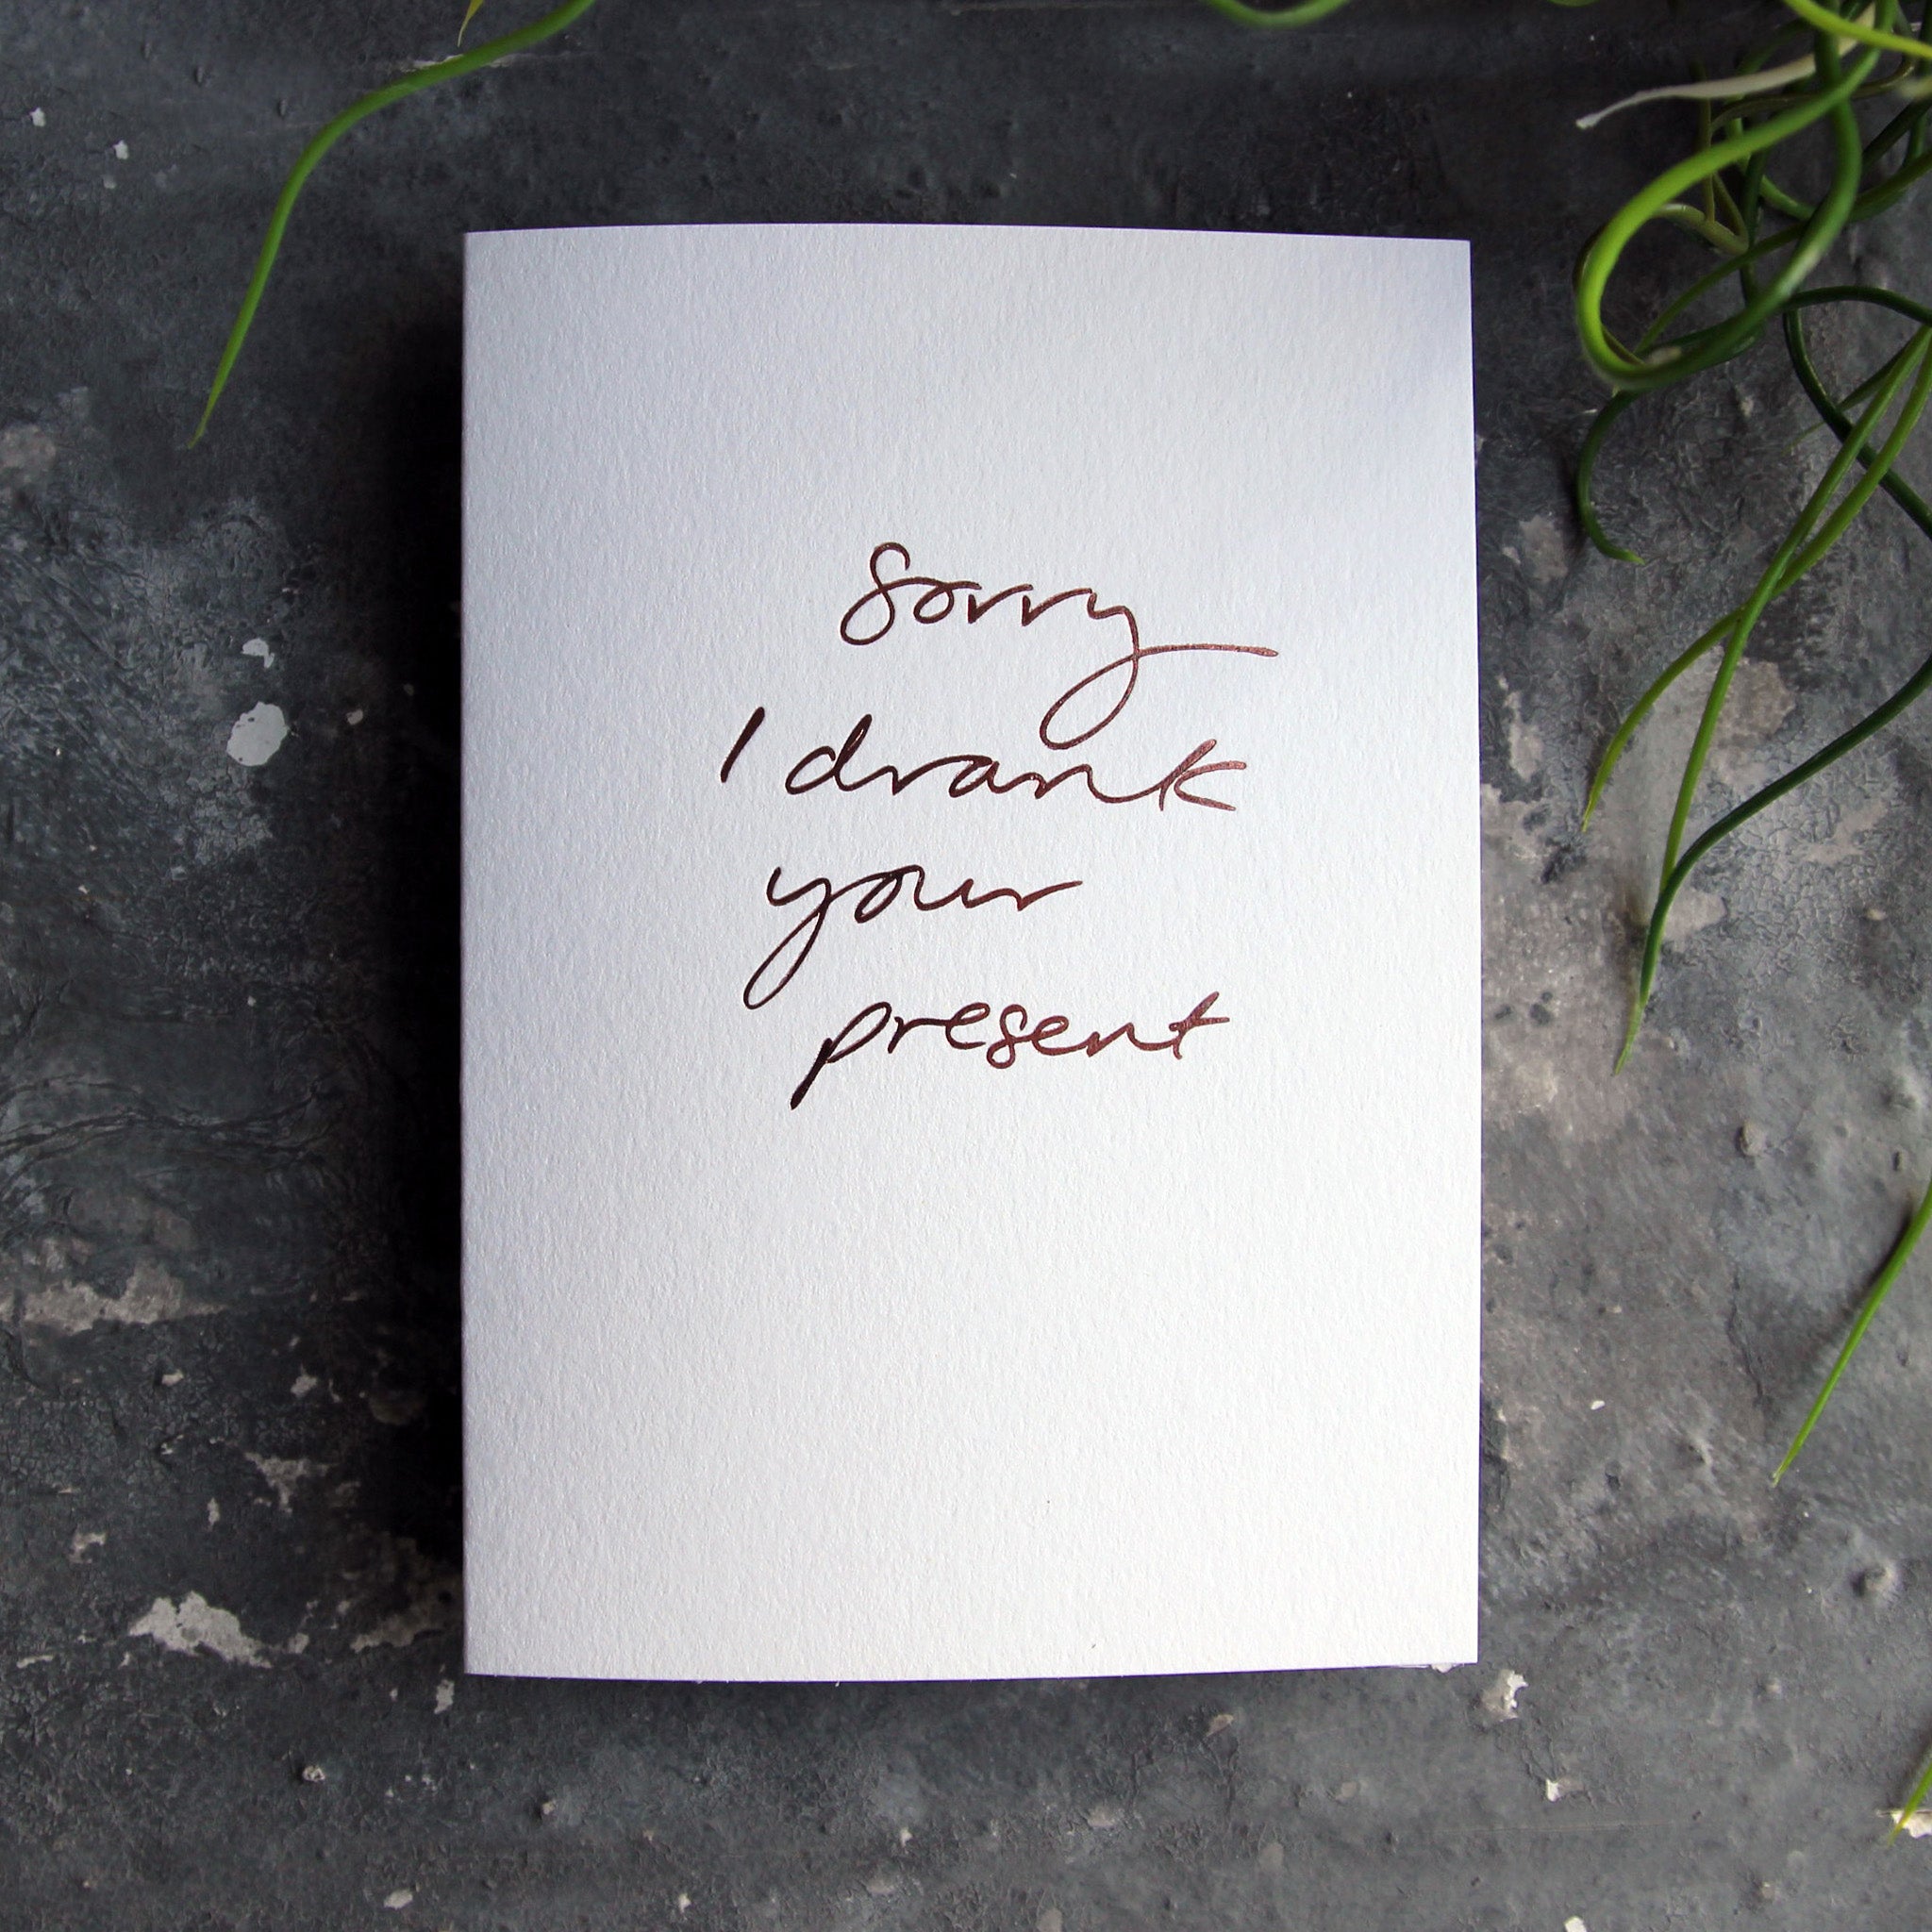 sorry
I drank
your
present